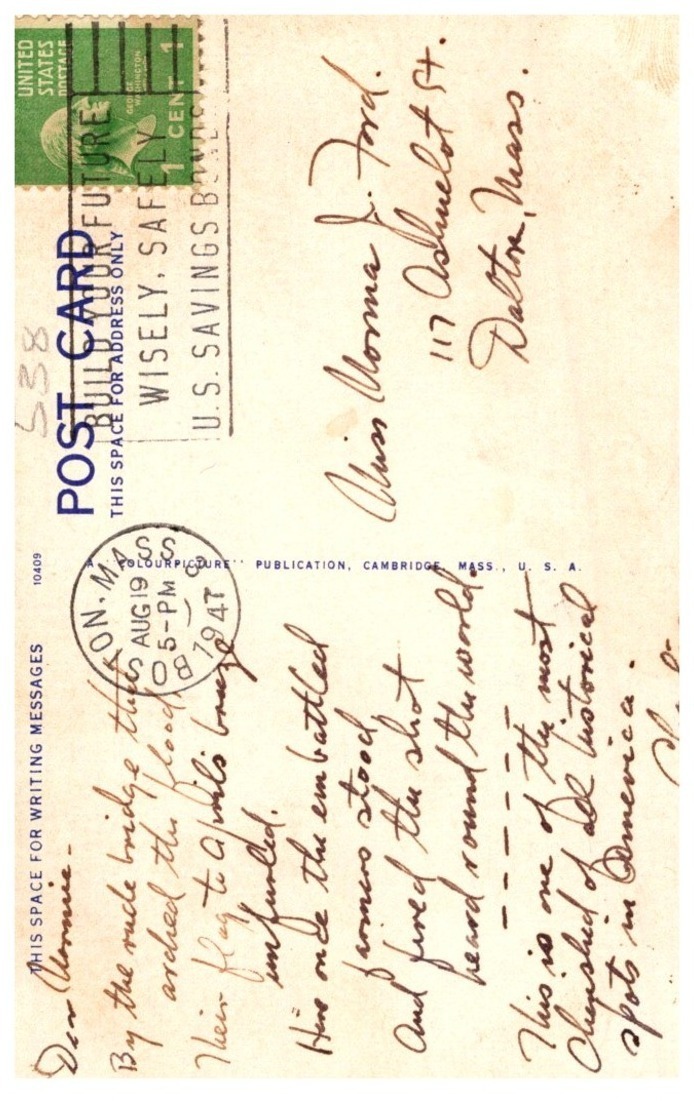 UNITED
STATES
POSTAGE
GEORGE
WASHINGTON
1 CENT 1
538
POST CARD
THIS SPACE FOR ADDRESS ONLY
BUILD YOUR FUTURE
WISELY, SAFELY
U.S. SAVINGS BONDS
BOSTON, MASS.
AUG 19
5-PM
1947
Miss Norma J. Ford.
117 Ashuelot St.
Dalton, Mass.
A "COLOURPICTURE" PUBLICATION, CAMBRIDGE, MASS., U. S. A.
10409
THIS SPACE FOR WRITING MESSAGES
Dear Normie -
By the rude bridge that
arched the flood,
Their flag to Aprils breeze
unfurled.
Here once the embattled
farmers stood
And fired the shot
heard round the world.
- - - - - -
This is one of the most
Cherished of all historical
spots in America.